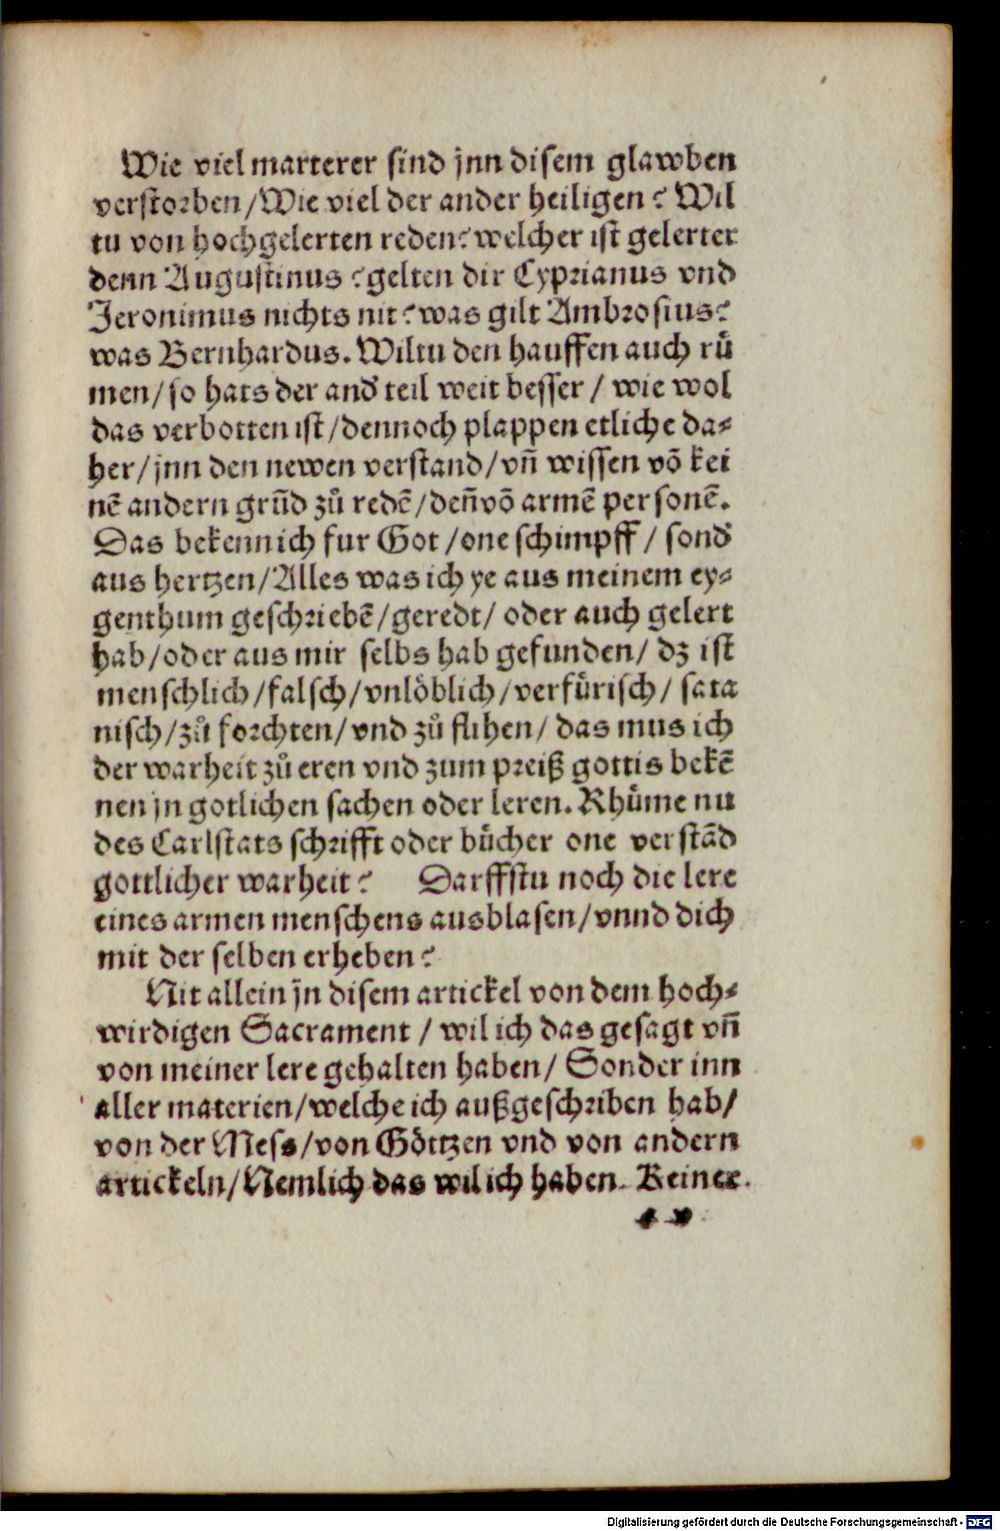 Wie viel marterer sind jnn disem glawben
verstorben/Wie viel der ander heiligen? Wil
tu von hochgelerten reden? welcher ist gelerter
denn Augustinus? gelten dir Cyprianus vnd
Jeronimus nichts nit? was gilt Ambrosius?
was Bernhardus. Wiltu den hauffen auch rů
men/so hats der and̕ teil weit besser/ wie wol
das verbotten ist/dennoch plappen etliche da⸗
her/jnn den newen verstand/vñ wissen võ kei
nẽ andern grũd zů redẽ/deñ võ armẽ personẽ.
Das bekenn ich fur Got/one schimpff/ sond̕
aus hertzen/Alles was ich ye aus meinem ey⸗
genthum geschriebẽ/geredt/ oder auch gelert
hab/oder aus mir selbs hab gefunden/ dz ist
menschlich/falsch/vnlöblich/verfürisch/ sata
nisch/zů forchten/vnd zů flihen/ das mus ich
der warheit zů eren vnd zum preiß gottis bekẽ
nen jn gotlichen sachen oder leren. Rhůme nu
des Carlstats schrifft oder bůcher one verstãd
gottlicher warheit? Darffstu noch die lere
eines armen menschens ausblasen/vnnd dich
mit der selben erheben?
Nit allein jn disem artickel von dem hoch⸗
wirdigen Sacrament/ wil ich das gesagt vñ
von meiner lere gehalten haben/ Sonder inn
aller materien/welche ich außgeschriben hab/
von der Mess/von Göttzen vnd von andern
artickeln/Nemlich das wil ich haben. Keiner
Digitalisierung gefördert durch die Deutsche Forschungsgemeinschaft - DFG